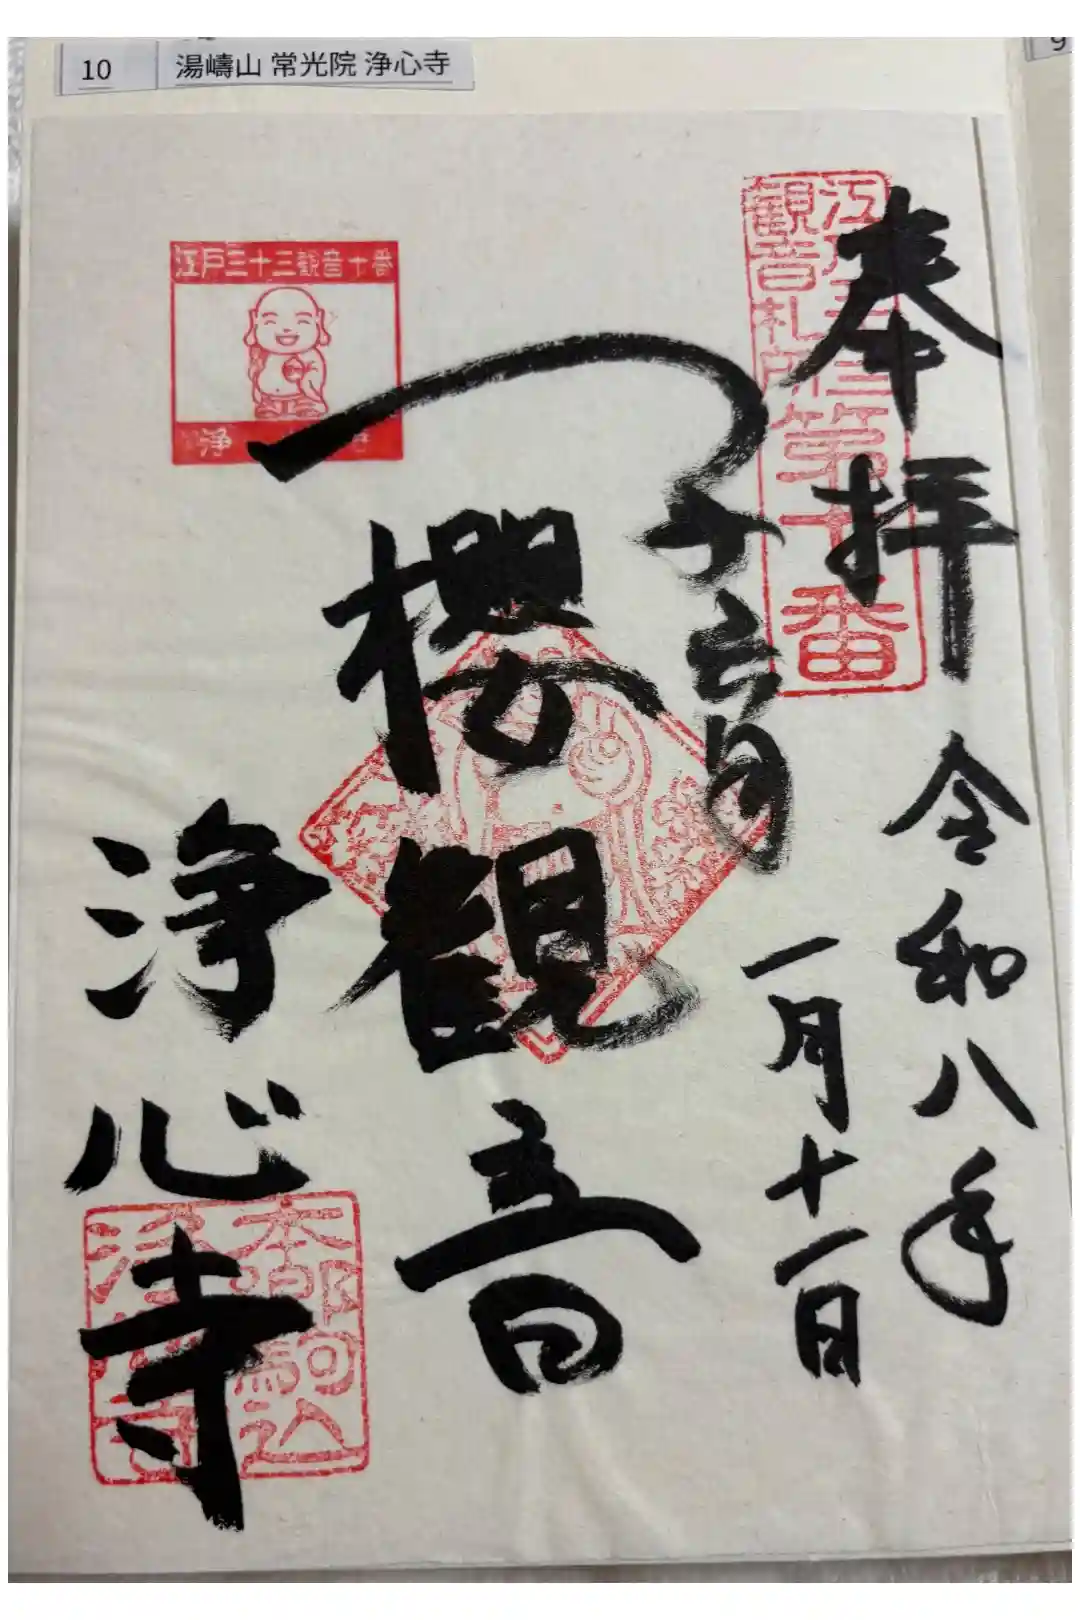 10 湯嶹山 常光院 浄心寺
9
江戸三十三観音札所第十番
奉拝
令和八年
一月十一日
江戸三十三観音十番
浄
子育
櫻観音
浄心寺
本郷駒込
浄心寺